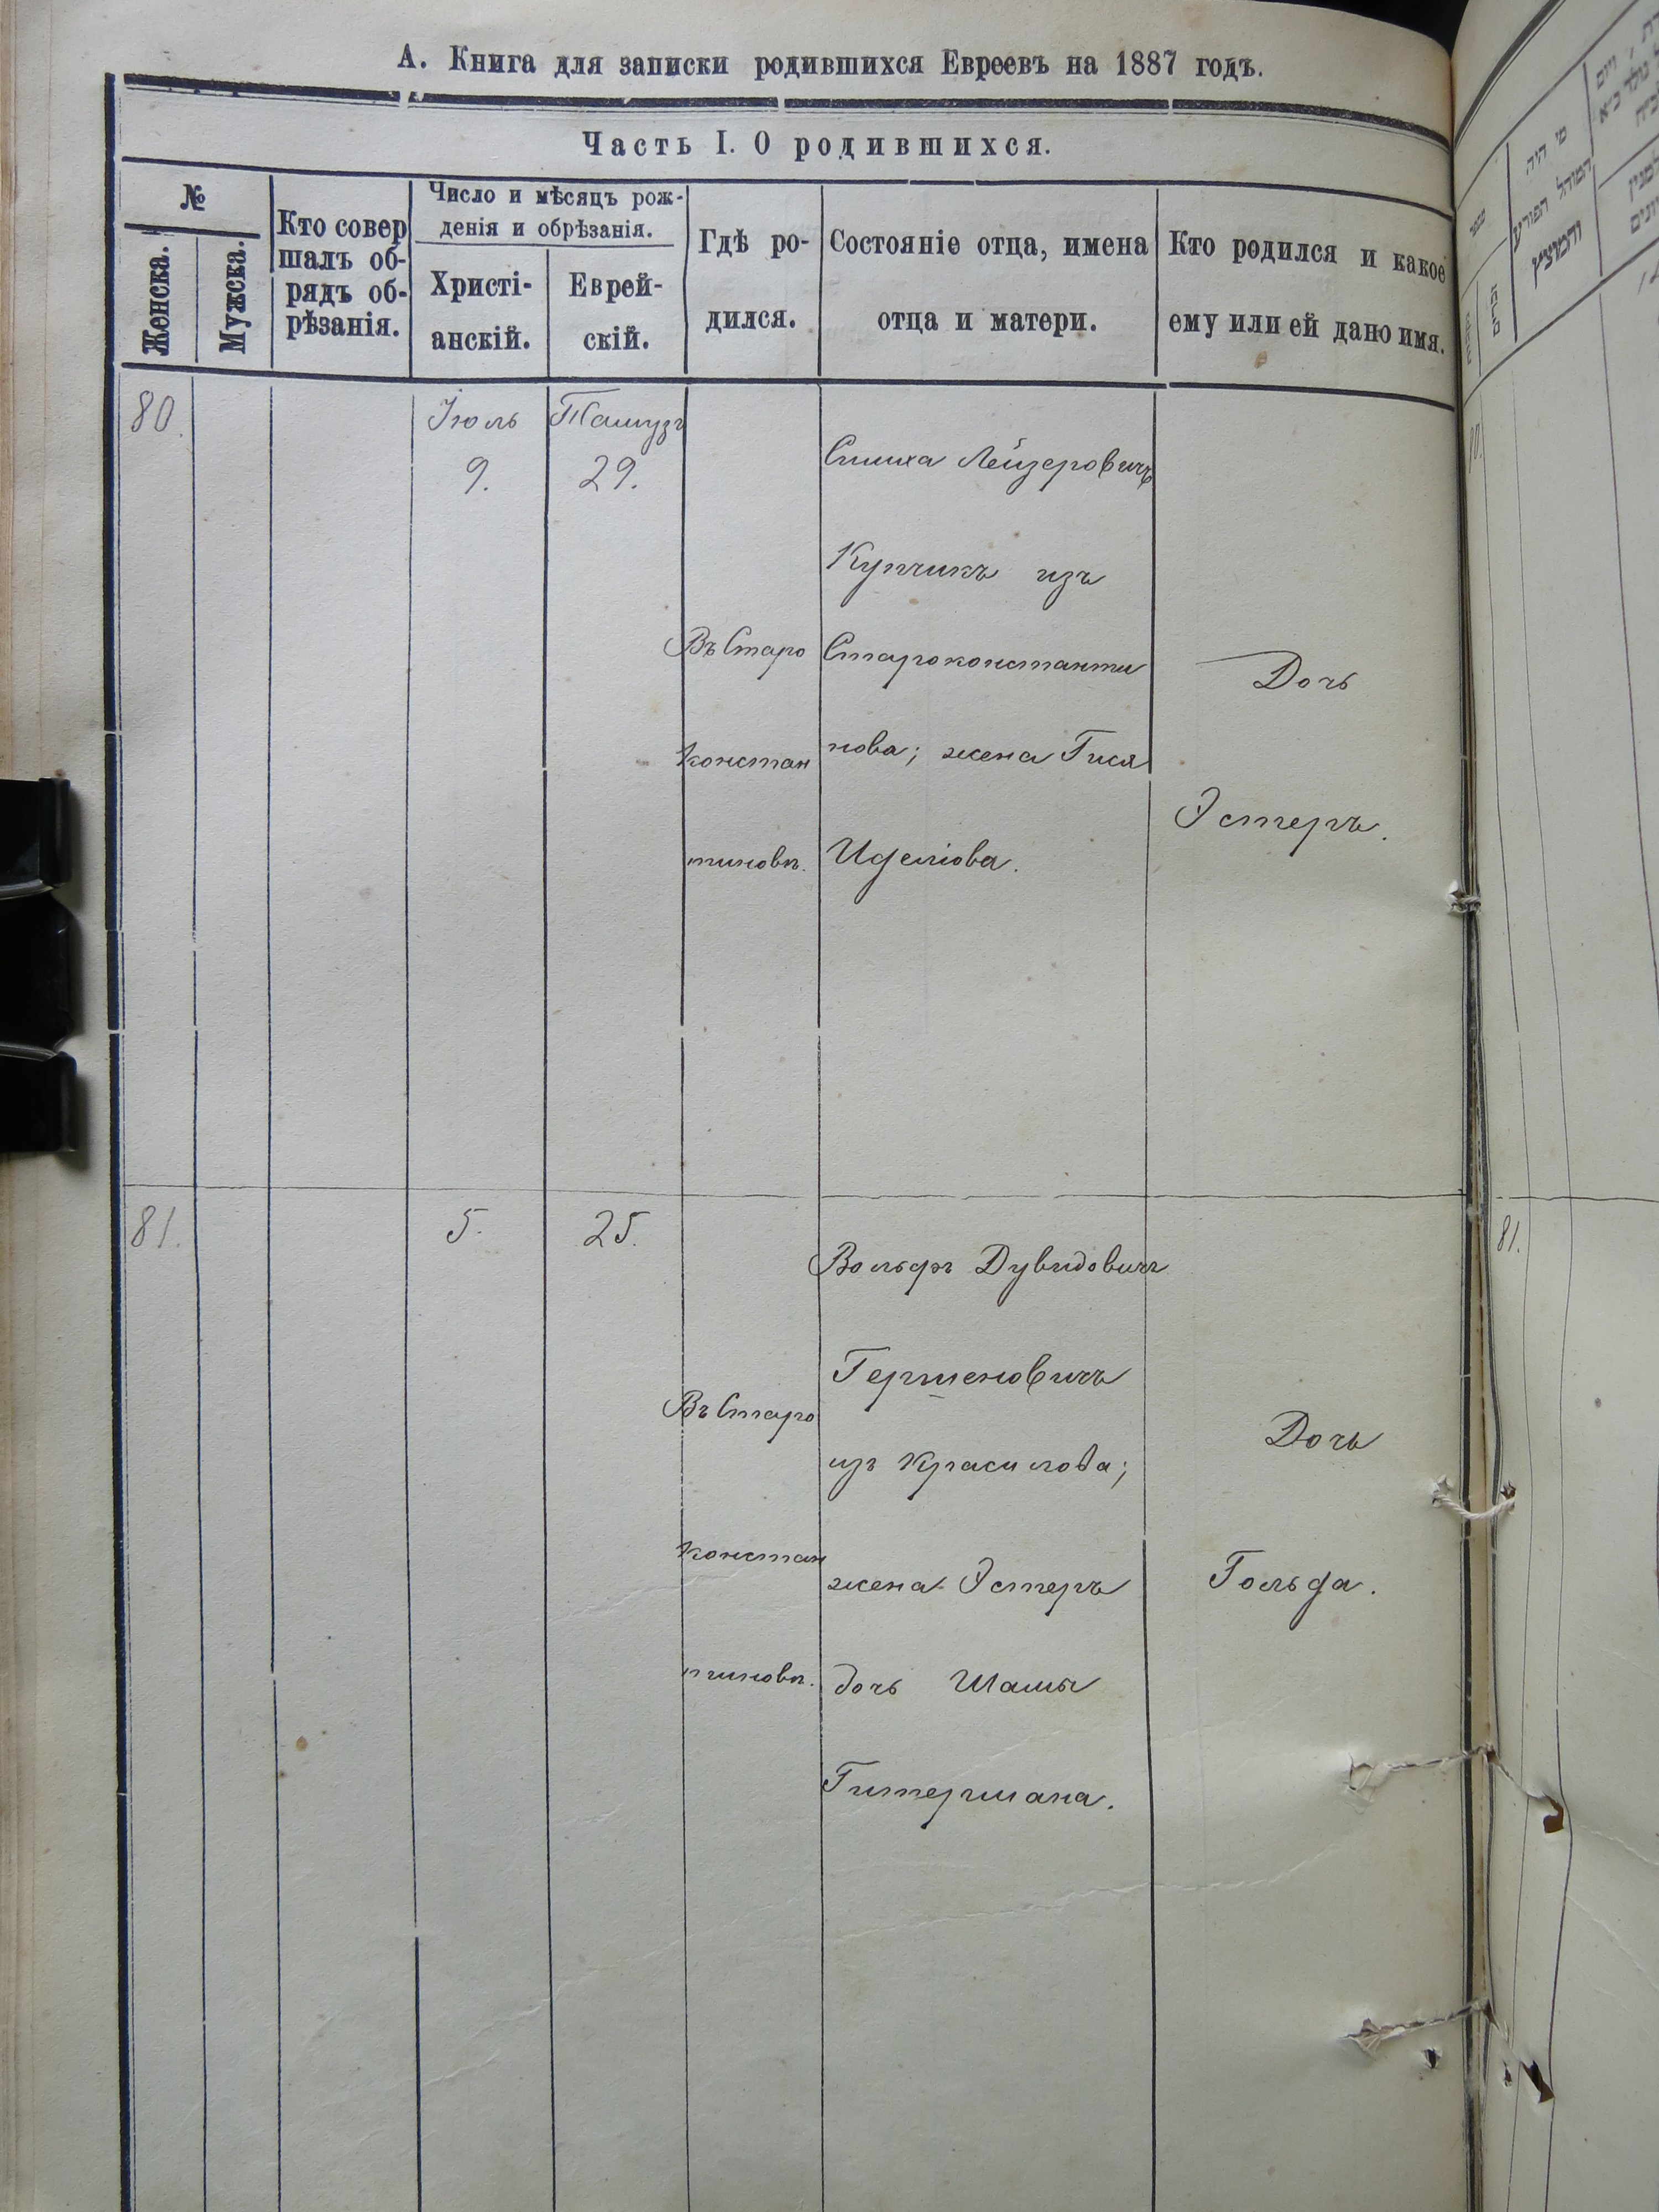 А. Книга для записки родившихся Евреевъ на 1887 годъ.
Часть I. О родившихся.
№
Женска.
Мужска.
Кто совер
шалъ об-
рядъ об-
рѣзанія.
Число и мѣсяцъ рож-
денія и обрѣзанія.
Христі-
анскій.
Еврей-
скій.
Гдѣ ро-
дился.
Состояніе отца, имена
отца и матери.
Кто родился и какое
ему или ей дано имя.
80.
Іюль
9.
Тамузъ
29.
Въ Старо
констан
тиновѣ.
Симха Лейзеровичъ
Купчикъ изъ
Староконстанти
нова; жена Гися
Иделіова.
Дочь
Эстеръ.
81.
5.
25.
Въ Старо
констан
тиновѣ.
Вольфъ Дувидовичъ
Гершеновичъ
изъ Красилова;
жена Эстеръ
дочь Шамы
Гитермана.
Дочь
Гольда.
מי היה
המוהל הפורע
והמוצץ
81.